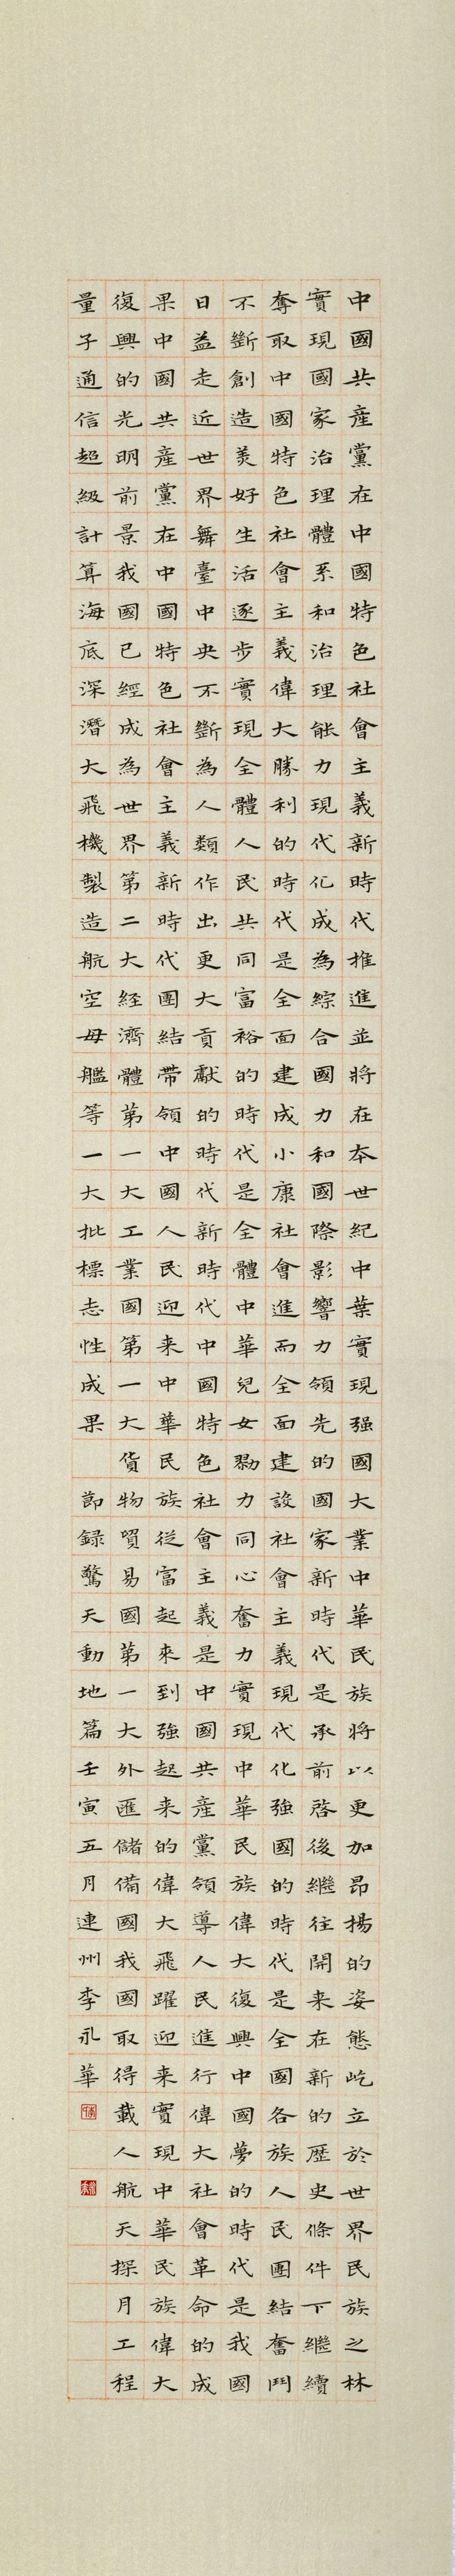 中國共産黨在中國特色社會主義新時代推進並將在本世紀中葉實現强國大業中華民族將以更加昂揚的姿態屹立於世界民族之林
實現國家治理體系和治理能力現代化成為綜合國力和國際影響力領先的國家新時代是承前啓後繼往開来在新的歷史條件下繼續
奪取中國特色社會主義偉大勝利的時代是全面建成小康社會進而全面建設社會主義現代化強國的時代是全國各族人民團結奮鬥
不斷創造美好生活逐步實現全體人民共同富裕的時代是全體中華兒女勠力同心奮力實現中華民族偉大復興中國夢的時代是我國
日益走近世界舞臺中央不斷為人類作出更大貢獻的時代新時代中國特色社會主義是中國共産黨領導人民進行偉大社會革命的成
果中國共産黨在中國特色社會主義新時代團結帶領中國人民迎来中華民族從富起來到強起来的偉大飛躍迎来實現中華民族偉大
復興的光明前景我國已經成為世界第二大経濟體第一大工業國第一大貨物貿易國第一大外匯儲備國我國取得載人航天探月工程
量子通信超級計算海底深潛大飛機製造航空母艦等一大批標志性成果 節録驚天動地篇壬寅五月連州李永華